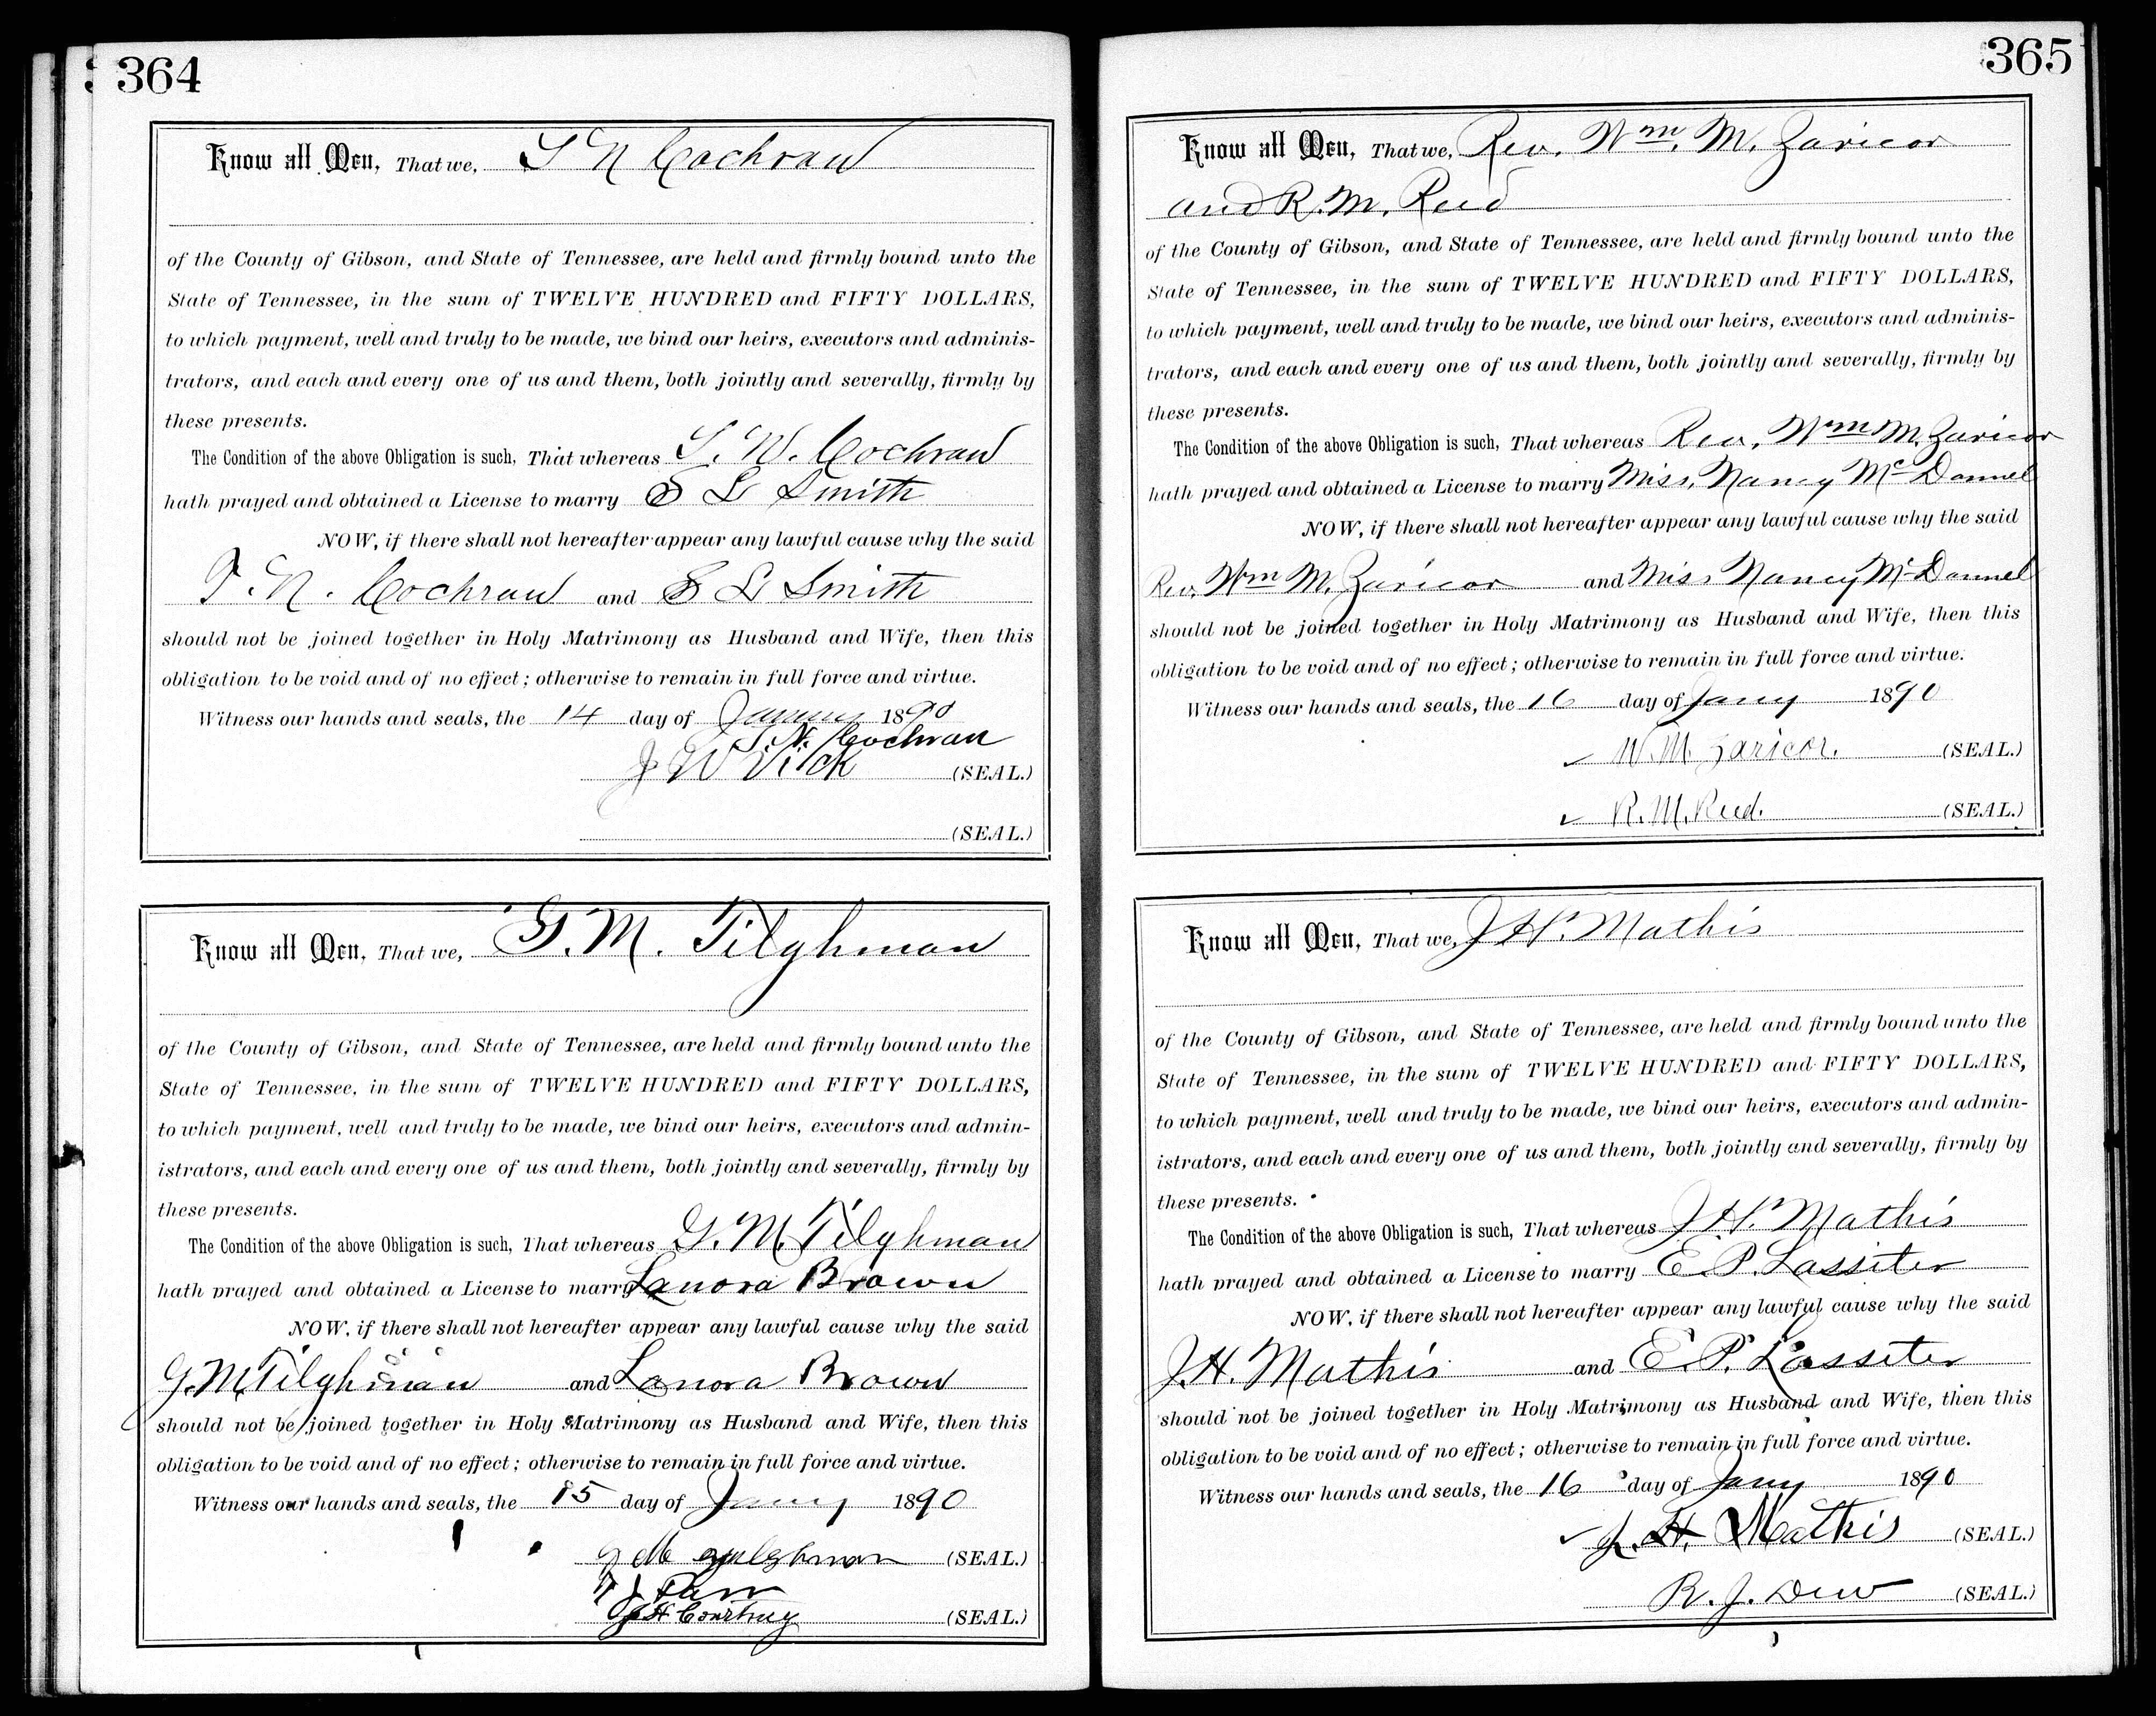 364
Know all Men, That we, S N Cochran
of the County of Gibson, and State of Tennessee, are held and firmly bound unto the
State of Tennessee, in the sum of TWELVE HUNDRED and FIFTY DOLLARS,
to which payment, well and truly to be made, we bind our heirs, executors and adminis-
trators, and each and every one of us and them, both jointly and severally, firmly by
these presents.
The Condition of the above Obligation is such, That whereas S. N. Cochran
hath prayed and obtained a License to marry S L Smith
NOW, if there shall not hereafter appear any lawful cause why the said
S. N. Cochran and S L Smith
should not be joined together in Holy Matrimony as Husband and Wife, then this
obligation to be void and of no effect; otherwise to remain in full force and virtue.
Witness our hands and seals, the 14 day of January 1890
S. N. Cochran
J W Vick (SEAL.)
(SEAL.)
Know all Men, That we, G. M. Tilghman
of the County of Gibson, and State of Tennessee, are held and firmly bound unto the
State of Tennessee, in the sum of TWELVE HUNDRED and FIFTY DOLLARS,
to which payment, well and truly to be made, we bind our heirs, executors and admin-
istrators, and each and every one of us and them, both jointly and severally, firmly by
these presents.
The Condition of the above Obligation is such, That whereas G. M. Tilghman
hath prayed and obtained a License to marry Lanora Brown
NOW, if there shall not hereafter appear any lawful cause why the said
G. M. Tilghman and Lanora Brown
should not be joined together in Holy Matrimony as Husband and Wife, then this
obligation to be void and of no effect; otherwise to remain in full force and virtue.
Witness our hands and seals, the 15 day of Jany 1890
G M Tilghman (SEAL.)
J H Courtney (SEAL.)
365
Know all Men, That we, Rev. Wm. M. Zaricor
and R. M. Reed
of the County of Gibson, and State of Tennessee, are held and firmly bound unto the
State of Tennessee, in the sum of TWELVE HUNDRED and FIFTY DOLLARS,
to which payment, well and truly to be made, we bind our heirs, executors and adminis-
trators, and each and every one of us and them, both jointly and severally, firmly by
these presents.
The Condition of the above Obligation is such, That whereas Rev. Wm M. Zaricor
hath prayed and obtained a License to marry Miss. Nancy McDannel
NOW, if there shall not hereafter appear any lawful cause why the said
Rev. Wm M. Zaricor and Miss Nancy McDannel
should not be joined together in Holy Matrimony as Husband and Wife, then this
obligation to be void and of no effect; otherwise to remain in full force and virtue.
Witness our hands and seals, the 16 day of Jany 1890
W. M. Zaricor. (SEAL.)
R. M. Reed. (SEAL.)
Know all Men, That we, J. H. Mathis
of the County of Gibson, and State of Tennessee, are held and firmly bound unto the
State of Tennessee, in the sum of TWELVE HUNDRED and FIFTY DOLLARS,
to which payment, well and truly to be made, we bind our heirs, executors and admin-
istrators, and each and every one of us and them, both jointly and severally, firmly by
these presents.
The Condition of the above Obligation is such, That whereas J. H. Mathis
hath prayed and obtained a License to marry E. P. Lassiter
NOW, if there shall not hereafter appear any lawful cause why the said
J. H. Mathis and E. P. Lassiter
should not be joined together in Holy Matrimony as Husband and Wife, then this
obligation to be void and of no effect; otherwise to remain in full force and virtue.
Witness our hands and seals, the 16 day of Jany 1890
J. H. Mathis (SEAL.)
R. J. Dew (SEAL.)